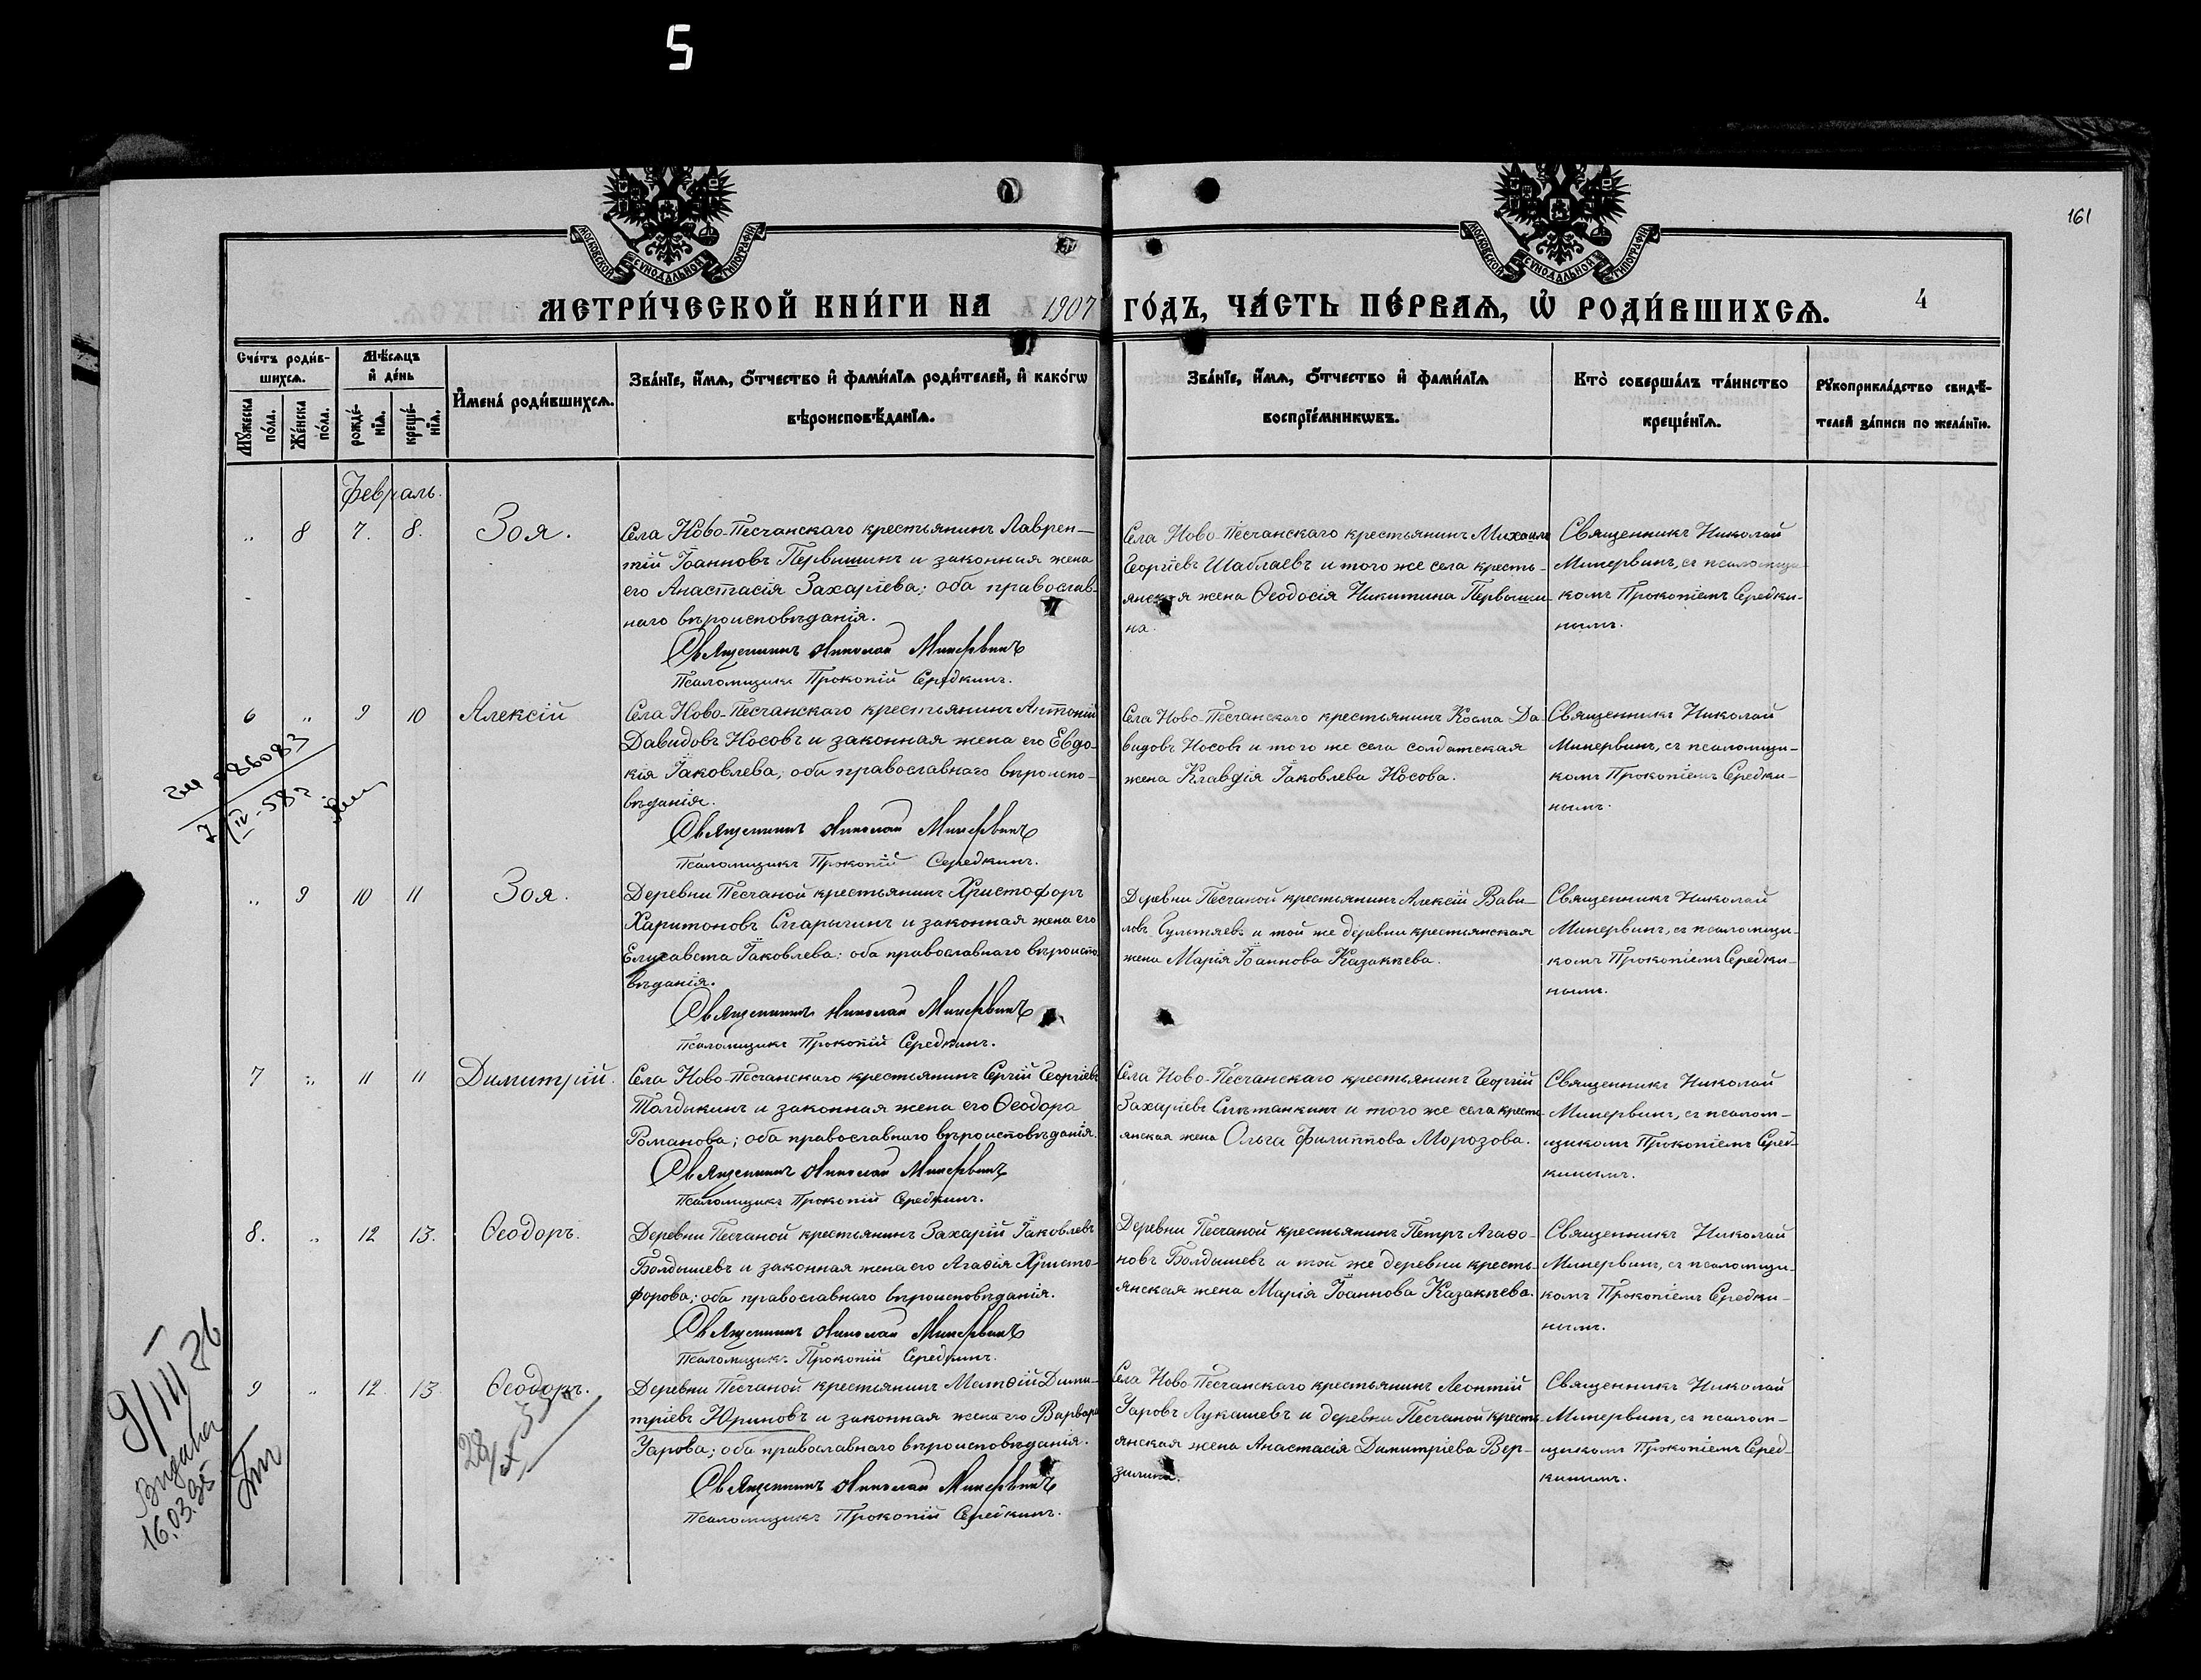 5
161
МОСКОВСКОЙ СУНОДАЛЬНОЙ ТИПОГРАФІИ
МОСКОВСКОЙ СУНОДАЛЬНОЙ ТИПОГРАФІИ
МЕТРИ́ЧЕСКОЙ КНИ́ГИ НА 1907 ГО́ДЪ, ЧА́СТЬ ПЕ́РВАѦ, Ѡ҆ РОДИ́ВШИХСѦ.
4
Сче́тъ роди́вшихсѧ.
Мꙋ́жеска по́ла.
Же́нска по́ла.
Мѣ́сѧцъ и҆ де́нь
рожде́нїѧ.
креще́нїѧ.
И҆мена̀ роди́вшихсѧ.
Зва́нїе, и҆́мѧ, ѻ҆́тчество и҆ фами́лїѧ роди́телей, и҆ како́гѡ
вѣроисповѣ́данїѧ.
Зва́нїе, и҆́мѧ, ѻ҆́тчество и҆ фами́лїѧ
воспрїе́мникѡвъ.
Кто̀ соверша́лъ та́инство
креще́нїѧ.
Рꙋкоприкла́дство свидѣ́-
телей за́писи по жела́нїю.
Февраль.
„ 8 7. 8. Зоя.
Села Ново-Песчанскаго крестьянинъ Лаврен-
тій Іоанновъ Первишинъ и законная жена
его Анастасія Захаріева; оба православ-
наго вѣроисповѣданія.
Священникъ Николай Минервинъ
Псаломщикъ Прокопій Середкинъ.
Села Ново-Песчанскаго крестьянинъ Михаилъ
Георгіевъ Шаблаевъ и того же села кресть-
янская жена Ѳеодосія Никитина Первыши-
на.
Священникъ Николай
Минервинъ, съ псаломщи-
комъ Прокопіемъ Середки-
нымъ.
6 „ 9 10 Алексій
Села Ново-Песчанскаго крестьянинъ Антоній
Давидовъ Носовъ и законная жена его Евдо-
кія Іаковлева; оба православнаго вѣроиспо-
вѣданія.
Священникъ Николай Минервинъ
Псаломщикъ Прокопій Середкинъ.
Села Ново-Песчанскаго крестьянинъ Косма Да-
видовъ Носовъ и того же села солдатская
жена Клавдія Іаковлева Носова.
Священникъ Николай
Минервинъ, съ псаломщи-
комъ Прокопіемъ Середки-
нымъ.
7/IV-58г.
„ 9 10 11 Зоя.
Деревни Песчаной крестьянинъ Христофоръ
Харитоновъ Старыгинъ и законная жена его
Елисавета Іаковлева; оба православнаго вѣроиспо-
вѣданія.
Священникъ Николай Минервинъ
Псаломщикъ Прокопій Середкинъ.
Деревни Песчаной крестьянинъ Алексій Вави-
ловъ Гультяевъ и той же деревни крестьянская
жена Марія Іоаннова Казакѣева.
Священникъ Николай
Минервинъ, съ псаломщи-
комъ Прокопіемъ Середки-
нымъ.
7 „ 11 11 Димитрій.
Села Ново-Песчанскаго крестьянинъ Сергій Георгіевъ
Толдыкинъ и законная жена его Ѳеодора
Романова; оба православнаго вѣроисповѣданія.
Священникъ Николай Минервинъ
Псаломщикъ Прокопій Середкинъ.
Села Ново-Песчанскаго крестьянинъ Георгій
Захаріевъ Смѣтанкинъ и того же села кресть-
янская жена Ольга Филиппова Морозова.
Священникъ Николай
Минервинъ, съ псалом-
щикомъ Прокопіемъ Серед-
кинымъ.
8. „ 12 13. Ѳеодоръ.
Деревни Песчаной крестьянинъ Захарій Іаковлевъ
Болдышевъ и законная жена его Агаѳія Христо-
форова; оба православнаго вѣроисповѣданія.
Священникъ Николай Минервинъ
Псаломщикъ Прокопій Середкинъ.
Деревни Песчаной крестьянинъ Петръ Агаѳо-
новъ Болдышевъ и той же деревни кресть-
янская жена Марія Іоаннова Казакѣева.
Священникъ Николай
Минервинъ, съ псаломщи-
комъ Прокопіемъ Середки-
нымъ.
9 „ 12. 13. Ѳеодоръ.
Деревни Песчаной крестьянинъ Матѳій Дими-
тріевъ Юриновъ и законная жена его Варвара
Уарова; оба православнаго вѣроисповѣданія.
Священникъ Николай Минервинъ
Псаломщикъ Прокопій Середкинъ.
Села Ново-Песчанскаго крестьянинъ Леонтій
Уаровъ Лукашевъ и деревни Песчаной кресть-
янская жена Анастасія Димитріева Вер-
зилина.
Священникъ Николай
Минервинъ, съ псалом-
щикомъ Прокопіемъ Серед-
кинымъ.
9/III 26
Выдана
16.03.35
28/X